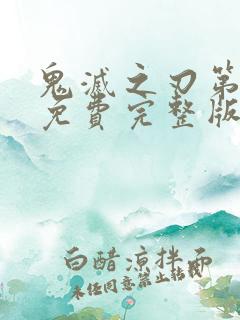 鬼滅之刃第
免費完整版
白醋涼拌面
未任同意禁止轉載